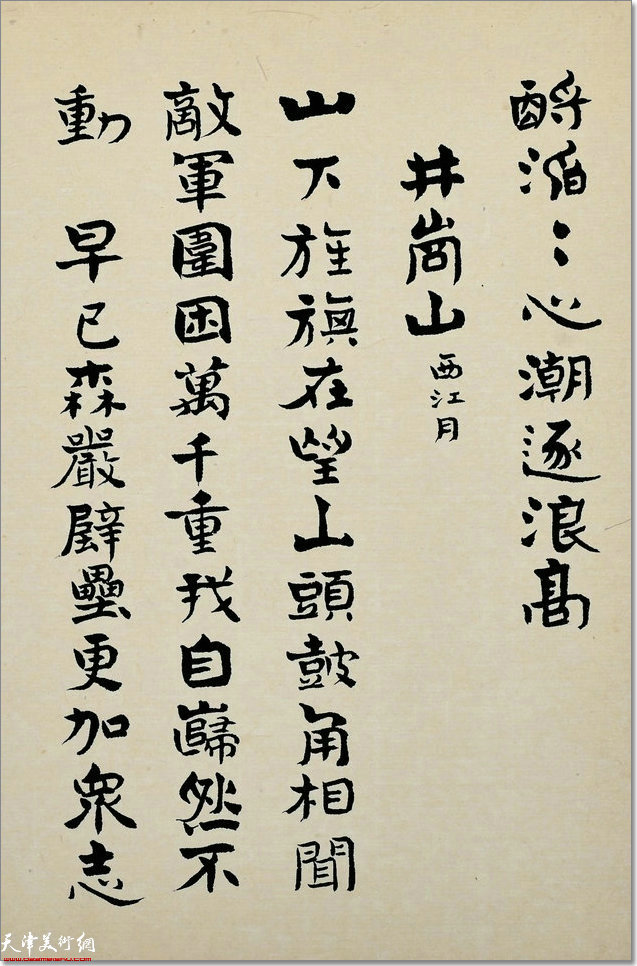 酹滔〻心潮逐浪高
井崗山 西江月
山下旌旗在望山頭鼓角相聞
敵軍圍困萬千重我自巋然不
動 早已森嚴壁壘更加眾志
天津美術網